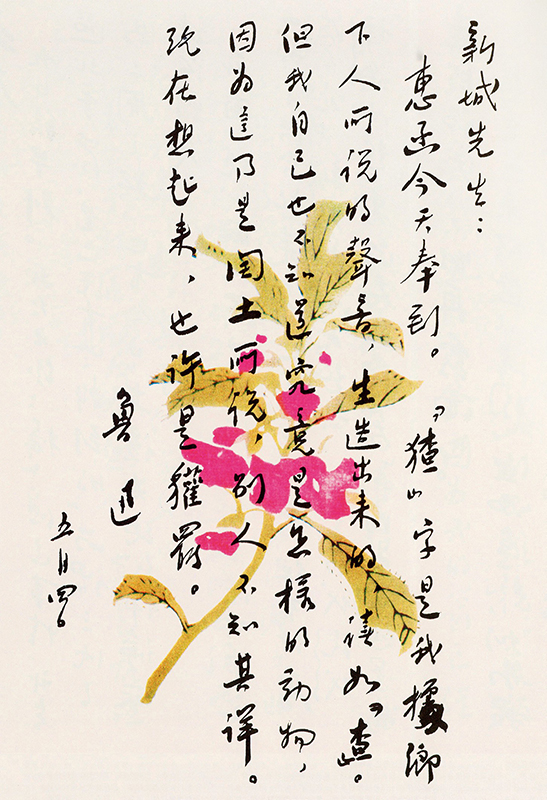 新城先生：
惠函今天奉到。『猹』字是我據鄉
下人所说的聲音，生造出来的，读如『查』。
但我自己也不知道究竟是怎樣的動物，
因为這乃是闰土所说，别人不知其详。
现在想起来，也许是獾罢。
魯迅
五月四日